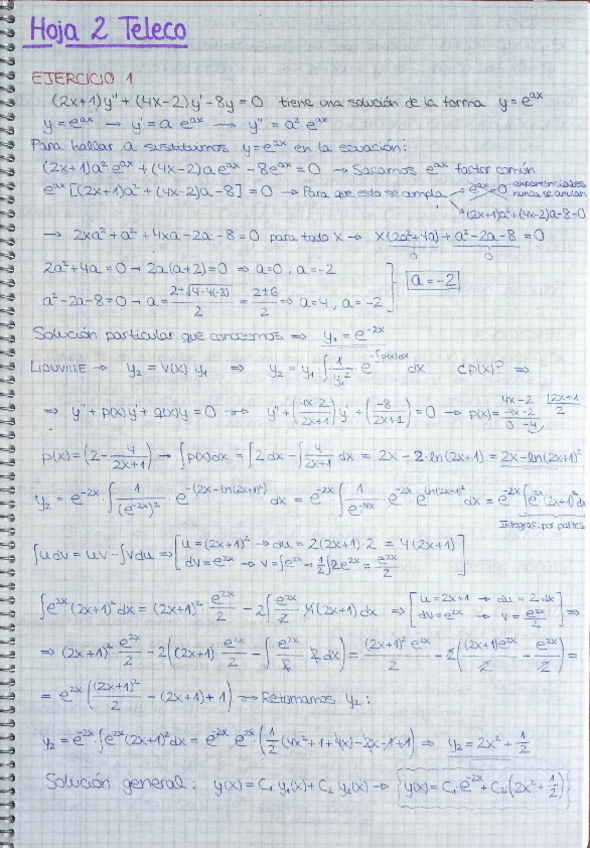 Hoja 2 Teleco
EJERCICIO 1
(2x+1)y''+(4x-2)y'-8y=0 tiene una solución de la forma y=e^{ax}
y=e^{ax} → y'=a·e^{ax} → y''=a²·e^{ax}
Para hallar a sustituimos y=e^{ax} en la ecuación:
(2x+1)a²e^{ax}+(4x-2)ae^{ax}-8e^{ax}=0 → Sacamos e^{ax} factor común
e^{ax}[(2x+1)a²+(4x-2)a-8]=0 → Para que esto se cumpla e^{ax}=0 exponenciales nunca se anulan
(2x+1)a²+(4x-2)a-8=0
→ 2xa²+a²+4xa-2a-8=0 para todo x → x(2a²+4a)+a²-2a-8=0
0 0
2a²+4a=0 → 2a(a+2)=0 ⇒ a=0, a=-2
a²-2a-8=0 → a=\frac{2±\sqrt{4-4(-8)}}{2}=\frac{2±6}{2} ⇒ a=4, a=-2
a=-2
Solución particular que conocemos ⇒ y₁=e^{-2x}
LIOUVILLE → y₂=v(x)·y₁ ⇒ y₂=y₁·∫\frac{1}{y₁²}·e^{-∫p(x)dx} dx ¿p(x)? ⇒
⇒ y''+p(x)y'+q(x)y=0 → y''+(\frac{4x-2}{2x+1})y'+(\frac{-8}{2x+1})=0 → p(x)= 4x-2 |2x+1
-4x-2 2
0 -4
p(x)=(2-\frac{4}{2x+1}) → ∫p(x)dx=∫2dx-∫\frac{4}{2x+1}dx=2x-2·ln(2x+1)=2x-ln(2x+1)²
y₂=e^{-2x}·∫\frac{1}{(e^{-2x})²}·e^{-(2x-ln(2x+1)²)}dx=e^{-2x}∫\frac{1}{e^{-4x}}·e^{-2x}·e^{ln(2x+1)²}dx=e^{-2x}∫e^{2x}(2x+1)²dx
Integras por partes
∫u dv=uv-∫v du ⇒ [u=(2x+1)² → du=2(2x+1)·2=4(2x+1)
dv=e^{2x} → v=∫e^{2x}→\frac{1}{2}∫2e^{2x}=\frac{e^{2x}}{2}]
∫e^{2x}(2x+1)²dx=(2x+1)²·\frac{e^{2x}}{2}-2∫\frac{e^{2x}}{2}·4(2x+1)dx ⇒ [u=2x+1 → du=2dx
dv=e^{2x} → v=\frac{e^{2x}}{2}] ⇒
⇒ (2x+1)²\frac{e^{2x}}{2}-2((2x+1)·\frac{e^{2x}}{2}-∫\frac{e^{2x}}{2}·2dx)=\frac{(2x+1)²e^{2x}}{2}-2(\frac{(2x+1)e^{2x}}{2}-\frac{e^{2x}}{2})=
=e^{2x}(\frac{(2x+1)²}{2}-(2x+1)+1) → Retomamos y₂:
y₂=e^{-2x}·∫e^{2x}(2x+1)²dx=e^{-2x}·e^{2x}·(\frac{1}{2}(4x²+1+4x)-2x-1+1) ⇒ y₂=2x²+\frac{1}{2}
Solución general: y(x)=C₁y₁(x)+C₂y₂(x) → y(x)=C₁·e^{-2x}+C₂(2x²+\frac{1}{2})